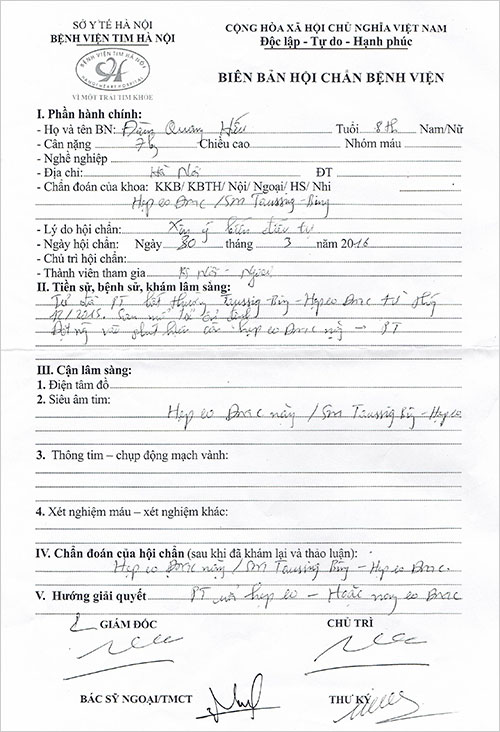 SỞ Y TẾ HÀ NỘI
BỆNH VIỆN TIM HÀ NỘI
BỆNH VIỆN TIM HÀ NỘI
HANOI HEART HOSPITAL
VÌ MỘT TRÁI TIM KHỎE
CỘNG HÒA XÃ HỘI CHỦ NGHĨA VIỆT NAM
Độc lập - Tự do - Hạnh phúc
BIÊN BẢN HỘI CHẨN BỆNH VIỆN
I. Phần hành chính:
- Họ và tên BN: Đặng Quang Hiếu Tuổi 8th Nam/Nữ
- Cân nặng 7kg Chiều cao Nhóm máu
- Nghề nghiệp
- Địa chỉ: Hà Nội ĐT
- Chẩn đoán của khoa: KKB/ KBTH/ Nội/ Ngoại/ HS/ Nhi
Hẹp eo ĐMC /SM Taussig-Bing
- Lý do hội chẩn: Xin ý kiến điều trị
- Ngày hội chẩn: Ngày 30 tháng 3 năm 2016
- Chủ trì hội chẩn:
- Thành viên tham gia Nội - Ngoại
II. Tiền sử, bệnh sử, khám lâm sàng:
PT bất thường Taussig-Bing - Hẹp eo ĐMC từ tháng
12/2015.
hẹp eo ĐMC nặng → PT
III. Cận lâm sàng:
1. Điện tâm đồ
2. Siêu âm tim:
Hẹp eo ĐMC nặng /SM Taussig Bing - Hẹp eo
3. Thông tim – chụp động mạch vành:
4. Xét nghiệm máu – xét nghiệm khác:
IV. Chẩn đoán của hội chẩn (sau khi đã khám lại và thảo luận):
Hẹp eo ĐMC nặng /SM Taussig Bing - Hẹp eo ĐMC.
V. Hướng giải quyết PT hẹp eo - Hoặc nong eo ĐMC
GIÁM ĐỐC
CHỦ TRÌ
BÁC SỸ NGOẠI/TMCT
THƯ KÝ